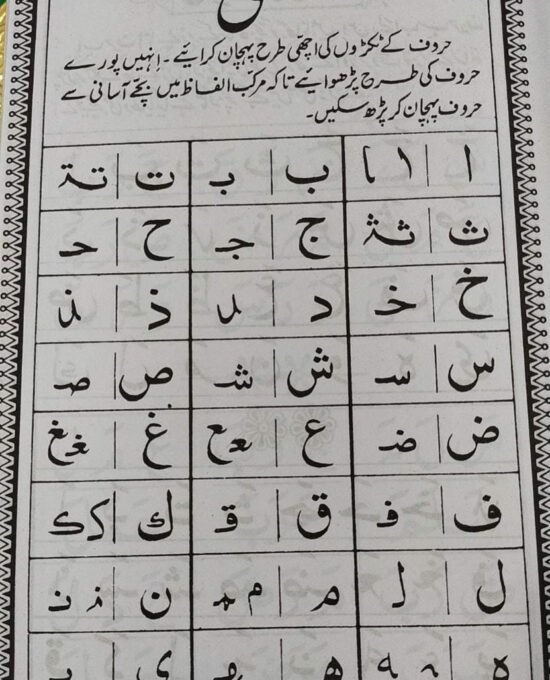 حروف کے ٹکڑوں کی اچھی طرح پہچان کرائیے۔ اِنہیں پورے
حروف کی طرح پڑھوائیے تاکہ مرکب الفاظ میں بچے آسانی سے
حروف پہچان کر پڑھ سکیں۔
ا ا ا ب بـ ت تـ ة
ث ثـ ة ج جـ ح حـ
خ خـ د ـد ذ ـذ
س سـ ش شـ ص صـ
ض ضـ ع ـعـ ـع غ ـغـ ـغ
ف فـ ق قـ ك كـ ک
ل لـ م مـ ـمـ ن نـ نـ
ہ